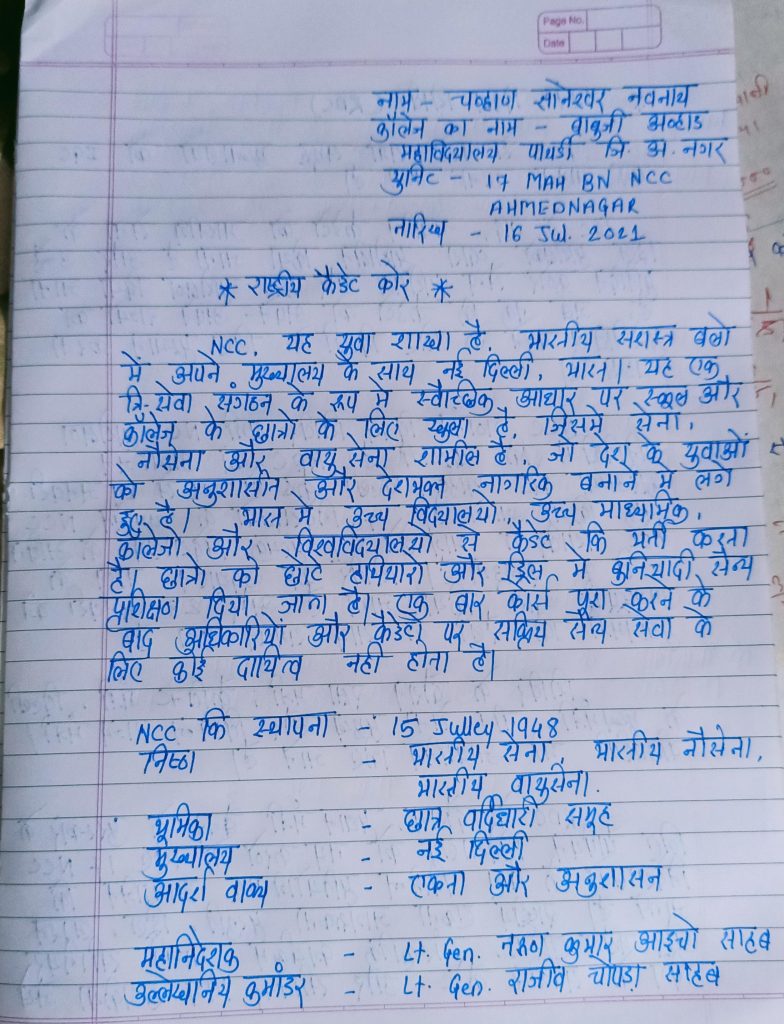 Page No.
Date
नाम - चव्हाण सोनेश्वर नवनाथ
कॉलेज का नाम - बाबुजी आव्हाड
महाविदयालय पाथर्डी जि. अ. नगर
युनिट - 17 MAH BN NCC
AHMEDNAGAR
तारिख - 16 Jul. 2021
* राष्ट्रीय कैडेट कोर *
NCC. यह युवा शाखा है. भारतीय सशस्त्र बलो
में अपने मुख्यालय के साथ नई दिल्ली, भारत। यह एक
त्रि-सेवा संगठन के रूप मे स्वैच्छिक आधार पर स्कूल और
कॉलेज के छात्रो के लिए खुला है, जिसमे सेना,
नौसेना और वायुसेना शामील है, जो देश के युवाओं
को अनुशासीत और देशभक्त नागरिक बनाने मे लगे
हुए है। भारत मे उच्च विदयालयो, उच्च माध्यमिक,
कॉलेजो और विश्वविदयालयो से कैडेट कि भर्ती करता
है। छात्रो को छोटे हथियारो और ड्रिल मे बुनियादी सैन्य
प्रशिक्षण दिया जाता है। एक बार कोर्स पूरा करने के
बाद अधिकारियों और कैडेटो पर सक्रिय सैन्य सेवा के
लिए कोई दायित्व नही होता है।
NCC कि स्थापना - 15 Julley 1948
निष्ठा - भारतीय सेना, भारतीय नौसेना,
भारतीय वायुसेना.
भूमिका - छात्र वर्दिधारी समूह
मुख्यालय - नई दिल्ली
आदर्श वाक्य - एकता और अनुशासन
महानिदेशक - Lt. Gen. तरुण कुमार आइचो साहब
उल्लेखनिय कमांडर - Lt. Gen. राजीव चोपडा साहब